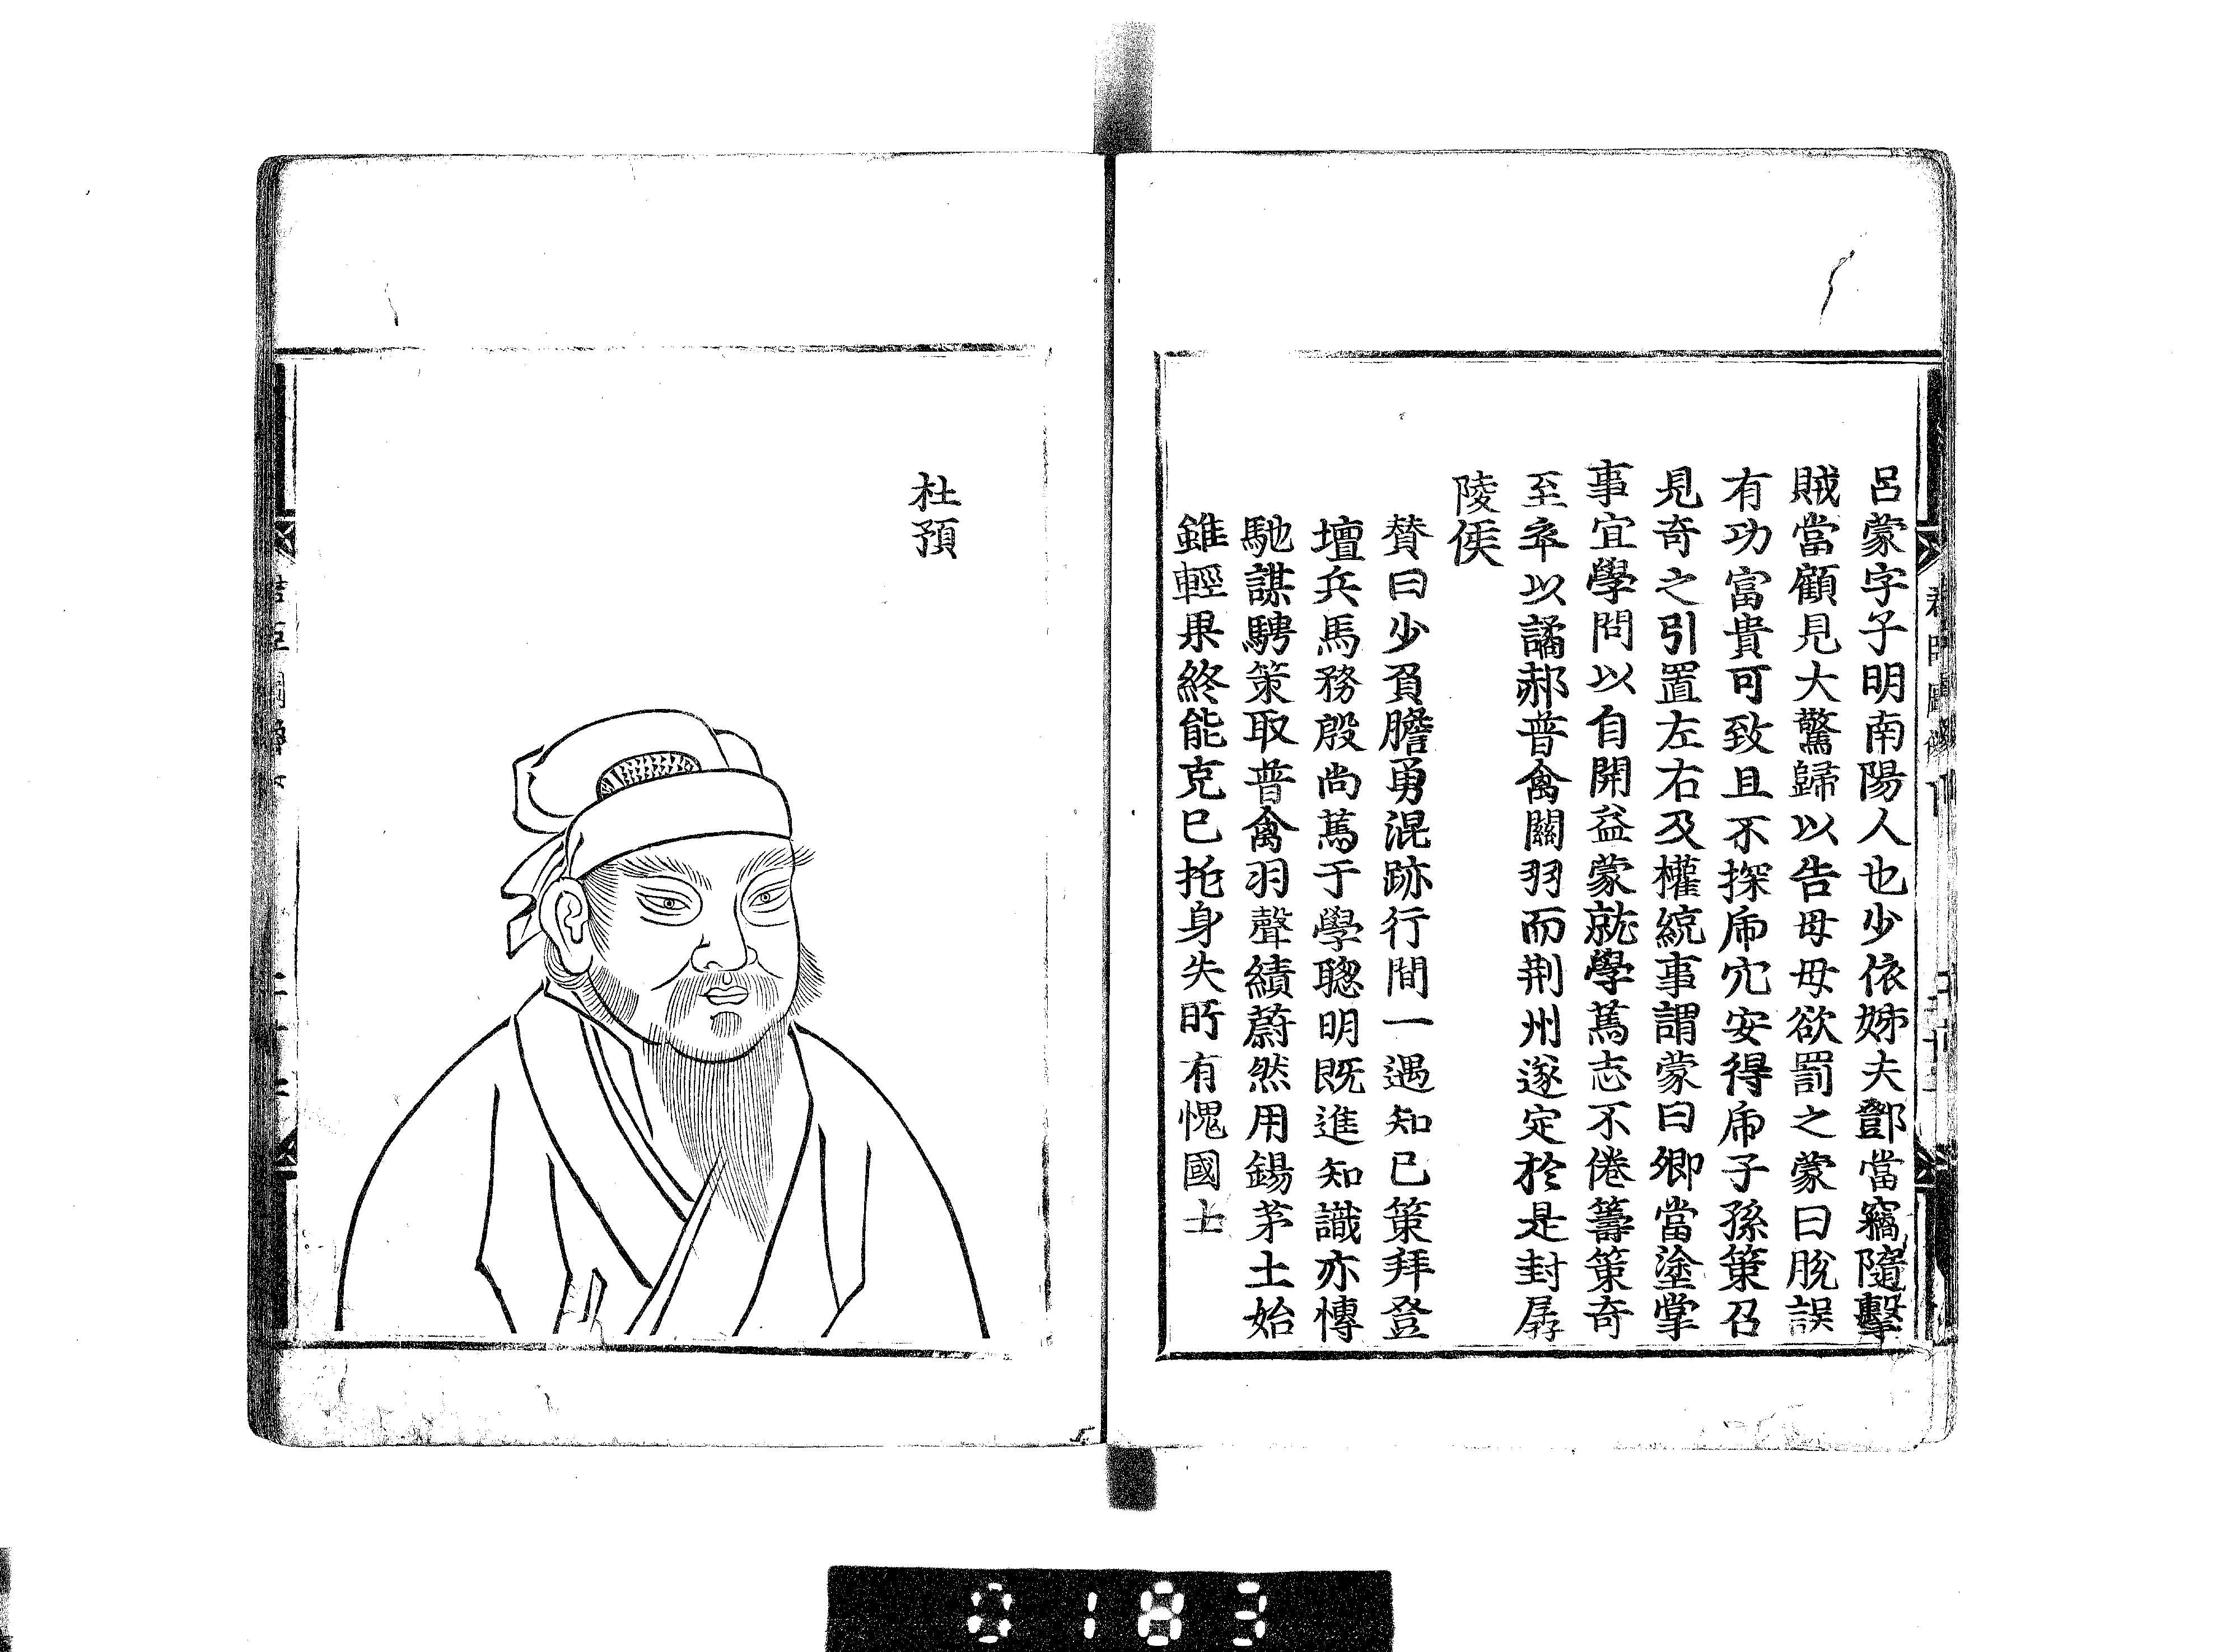 呂蒙字子明南陽人也少依姊夫鄧當竊隨擊
賊當顧見大驚歸以告母母欲罰之蒙曰脫誤
有功富貴可致且不探虎穴安得虎子孫策召
見奇之引置左右及權統事謂蒙曰卿當塗掌
事宜學問以自開益蒙就學萬志不倦籌策奇
至卒以譎郝普禽關羽而荆州遂定於是封孱
陵侯
賛曰少負膽勇混跡行間一遇知已策拜登
壇兵馬務殷尚萬于學聰明既進知識亦慱
馳謀騁策取普禽羽聲績蔚然用錫茅土始
雖輕果終能克巳托身失所有愧國士
杜預
0183